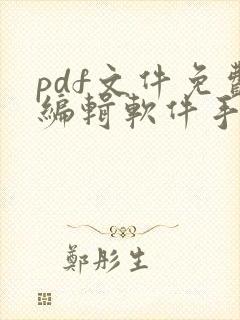 pdf文件免費
編輯軟件手
鄭彤生